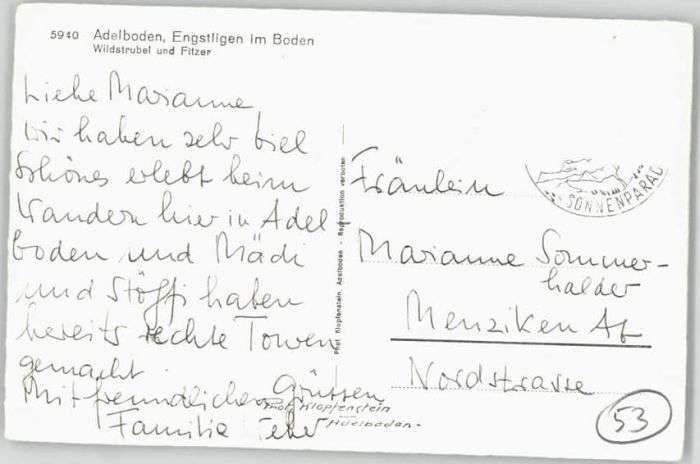 5940 Adelboden, Engstligen im Boden
Wildstrubel und Fitzer
Liebe Marianne
Wir haben sehr viel
Schönes erlebt beim
Wandern hier in Adel
boden und Mädi
und Stöffi haben
bereits rechte Touren
gemacht.
Mit freundlichen Grüssen
Familie
Phot. Klopfenstein, Adelboden - Reproduktion verboten
Phot. Klopfenstein
Adelboden.
SONNENPARAD
Fräulein
Marianne Sommer-
halder
Menziken Ag
Nordstrasse
53